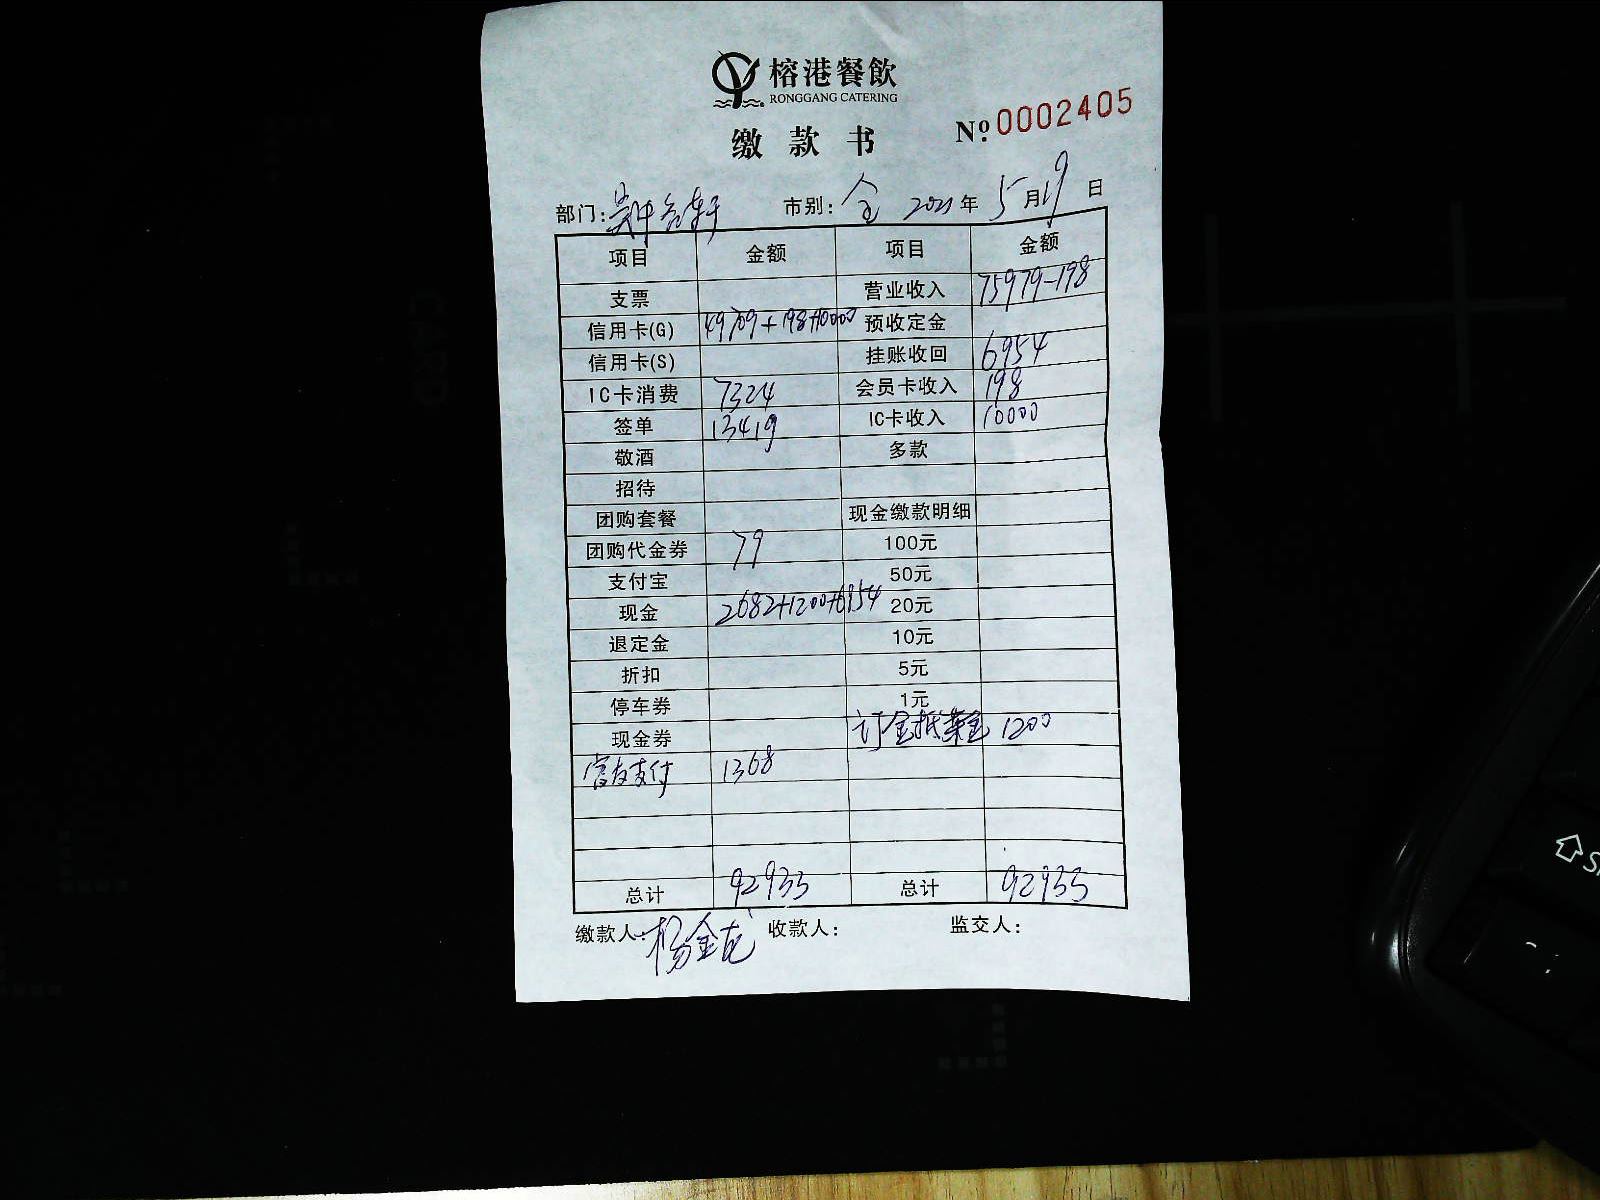 榕港餐飲
RONGGANG CATERING
缴款书 Nº 0002405
部门: 市别: 全 2021年 5月19日
项目 金额 项目 金额
支票 营业收入 75979-198
信用卡(G) 49709+198+10000 预收定金
信用卡(S) 挂账收回 6954
IC卡消费 7324 会员卡收入 198
签单 13419 IC卡收入 10000
敬酒 多款
招待
团购套餐 现金缴款明细
团购代金券 79 100元
支付宝 50元
现金 2682+1200+6954 20元
退定金 10元
折扣 5元
停车券 1元
现金券 订金抵菜金 1200
富友支付 1368
总计 92933 总计 92933
缴款人: 杨金龙 收款人: 监交人: